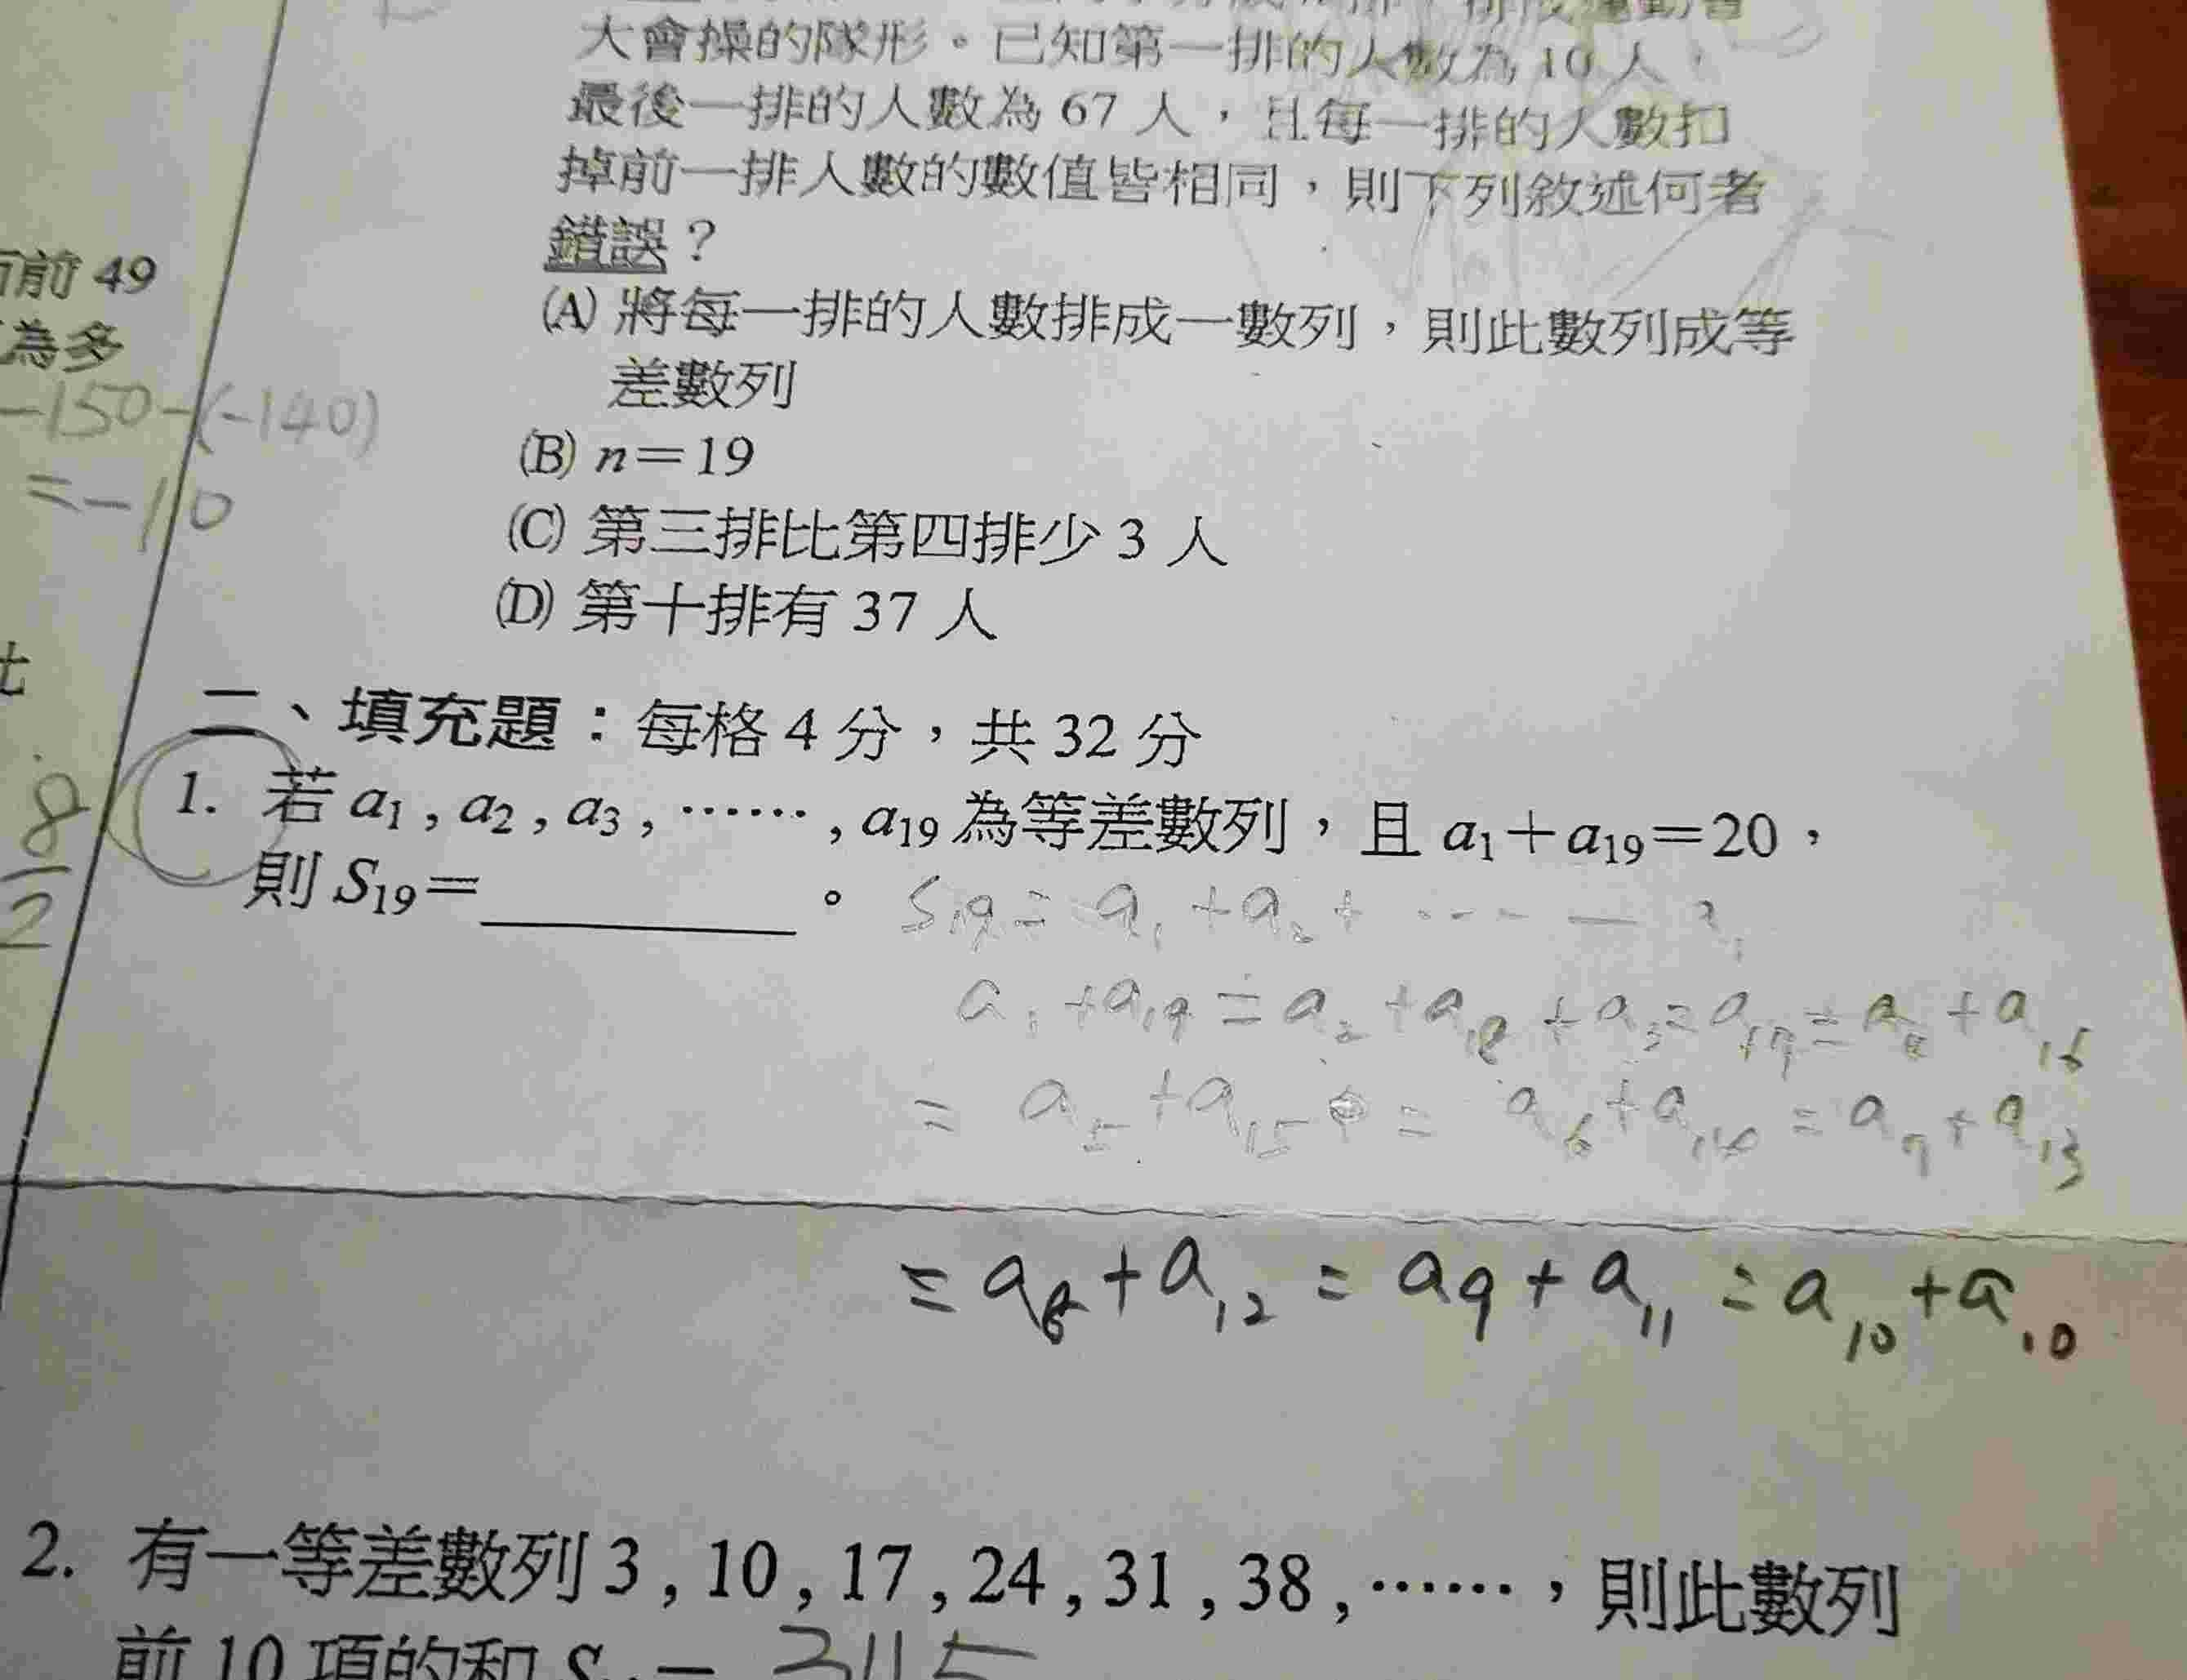 大會操的隊形。已知第一排的人數為 10 人，
最後一排的人數為 67 人，且每一排的人數扣
掉前一排人數的數值皆相同，則下列敘述何者
錯誤？
(A) 將每一排的人數排成一數列，則此數列成等
差數列
(B) n＝19
(C) 第三排比第四排少 3 人
(D) 第十排有 37 人
前 49
為多
-150-(-140)
=-10
8
2
二、填充題：每格 4 分，共 32 分
1. 若 a1 , a2 , a3 , …… , a19 為等差數列，且 a1＋a19＝20，
則 S19＝________。
S19= a1 +a2+
a1 +a19 = a2 +a18 + a3= a17 = a4 + a16
= a5 +a15 = a6 +a14 = a7 + a13
= a8 + a12 = a9 + a11 = a10 + a10
2. 有一等差數列 3 , 10 , 17 , 24 , 31 , 38 , ……，則此數列
前 10 項的和 S = 345